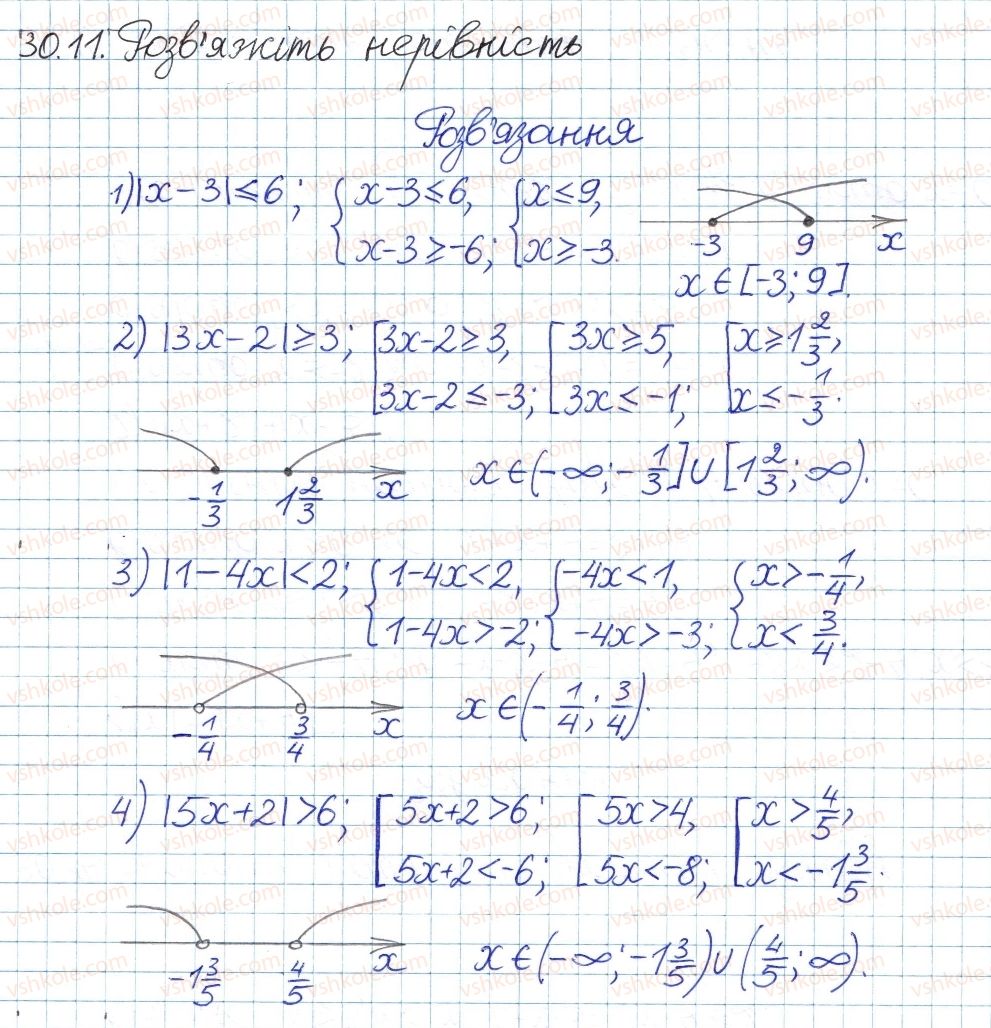 30.11. Розв'яжіть нерівність
Розв'язання
1) |x-3|≤6; { x-3≤6, x-3≥-6; { x≤9, x≥-3.
-3 9 x
x∈[-3;9].
2) |3x-2|≥3; [ 3x-2≥3, 3x-2≤-3; [ 3x≥5, 3x≤-1; [ x≥1 2/3, x≤-1/3.
-1/3 1 2/3 x x∈(-∞;-1/3]∪[1 2/3;∞).
3) |1-4x|<2; { 1-4x<2, 1-4x>-2; { -4x<1, -4x>-3; { x>-1/4, x<3/4.
-1/4 3/4 x x∈(-1/4;3/4).
4) |5x+2|>6; [ 5x+2>6; 5x+2<-6; [ 5x>4, 5x<-8; [ x>4/5, x<-1 3/5.
-1 3/5 4/5 x x∈(-∞;-1 3/5)∪(4/5;∞).
vshkole.com